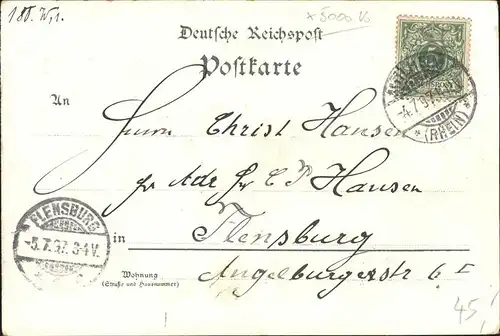 180. W,1.
x 5000 Vo
Deutsche Reichspost
Postkarte
5
-4.7.97
* (RHEIN) *
An
Herrn Christ Hansen
pr Adr Hr C P Hansen
in Flensburg
Angelburgerstr 6 I
FLENSBURG
-5.7.97. 3-4V.
Wohnung
(Straße und Hausnummer)
45,-